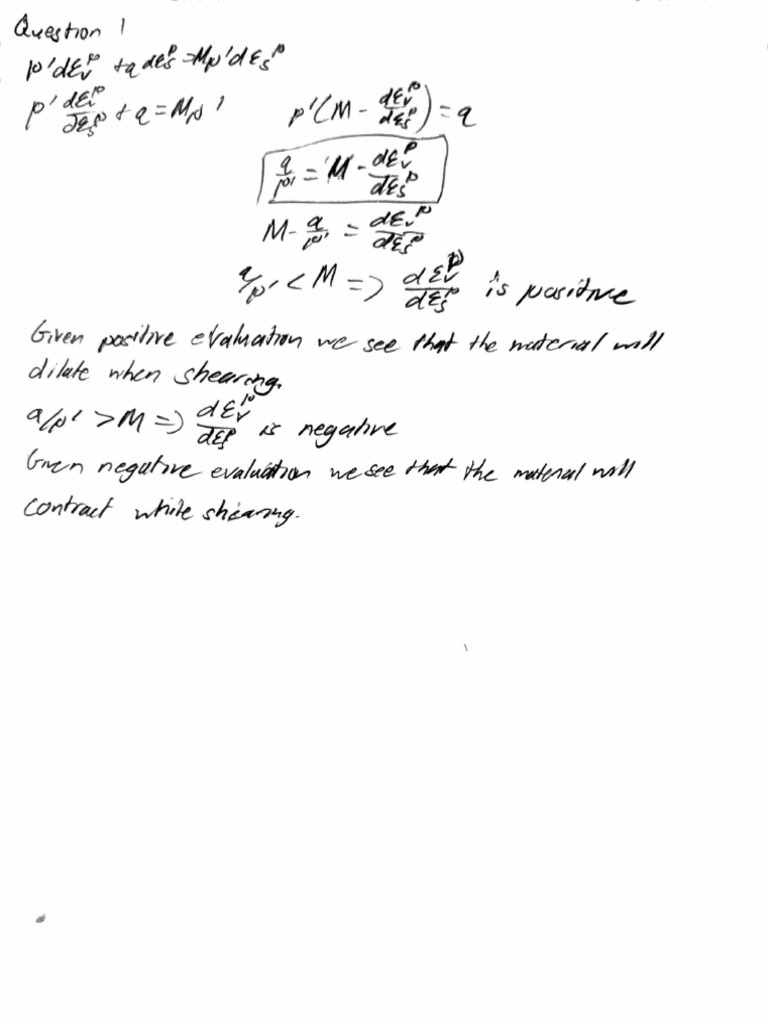 Question 1
p'dεᵥᵖ + q dεₛᵖ = Mp'dεₛᵖ
p' dεᵥᵖ/dεₛᵖ + q = Mp'
p'(M - dεᵥᵖ/dεₛᵖ) = q
q/p' = M - dεᵥᵖ/dεₛᵖ
M - q/p' = dεᵥᵖ/dεₛᵖ
q/p' < M => dεᵥᵖ/dεₛᵖ is positive
Given positive evaluation we see that the material will
dilate when shearing.
q/p' > M => dεᵥᵖ/dεₛᵖ is negative
Given negative evaluation we see that the material will
contract while shearing.